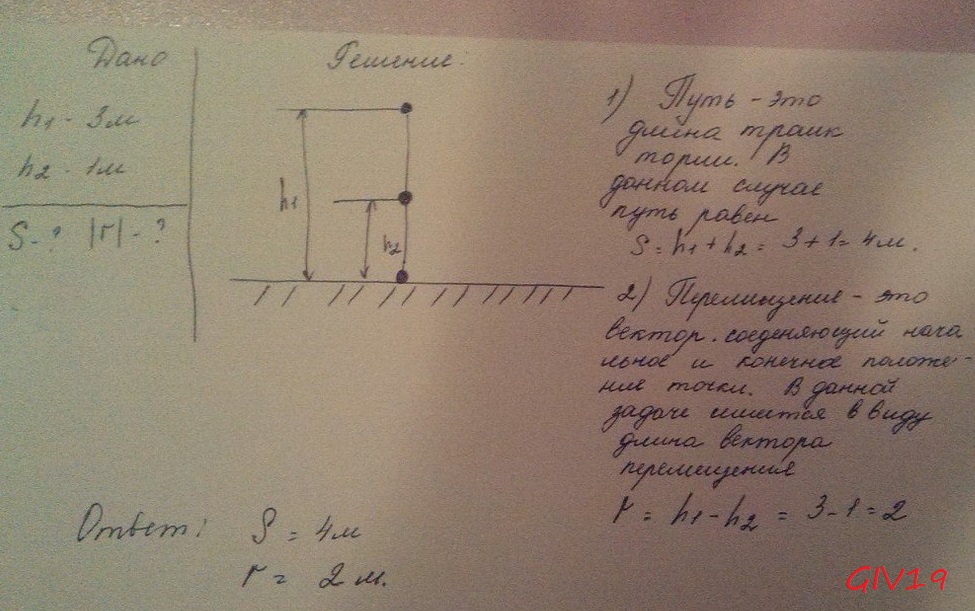 Дано
h1 - 3м
h2 - 1м
S - ? |r| - ?
Решение:
h1
h2
1) Путь - это
длина траик
тории. В
данном случае
путь равен
S = h1 + h2 = 3 + 1 = 4м.
2) Перемищение - это
вектор. соеденяющий нача
льное и конечное положе-
ние точки. В данной
задаче имеется в виду
длина вектора
перемещения
r = h1 - h2 = 3 - 1 = 2
Ответ: S = 4м
r = 2м.
GIV19